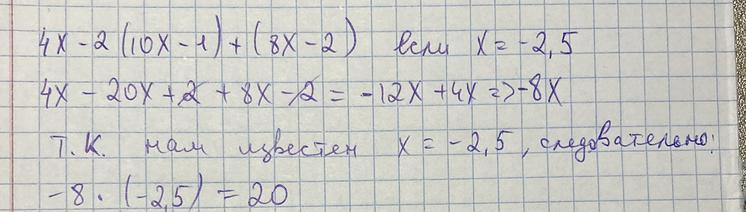 4x - 2 (10x - 1) + (8x - 2) если x = -2,5
4x - 20x + 2 + 8x - 2 = -12x + 4x => -8x
Т.К. нам известен x = -2,5, следовательно:
-8 · (-2,5) = 20